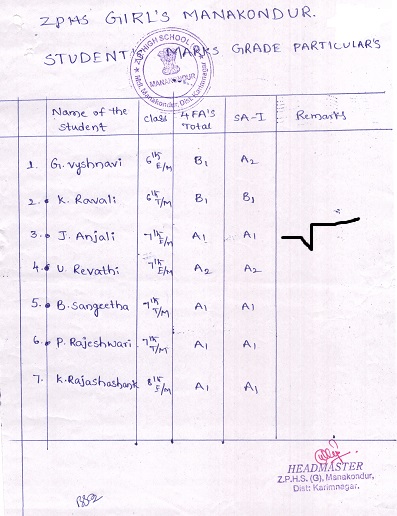 ZPHS GIRL'S MANAKONDUR.
STUDENT MARKS GRADE PARTICULAR'S
Z.P. HIGH SCHOOL
MANAKONDUR
Mdl: Manakondur, Dist: Karimnagar
Name of the student class 4 FA'S Total SA-I Remarks
1. G. vyshnavi 6th E/M B1 A2
2. K. Ravali 6th T/M B1 B1
3. J. Anjali 7th E/M A1 A1
4. U. Revathi 7th E/M A2 A2
5. B. Sangeetha 7th T/M A1 A1
6. P. Rajeshwari 7th T/M A1 A1
7. K. Rajashashank 8th E/M A1 A1
HEADMASTER
Z.P.H.S. (G), Manakondur,
Dist: Karimnagar.